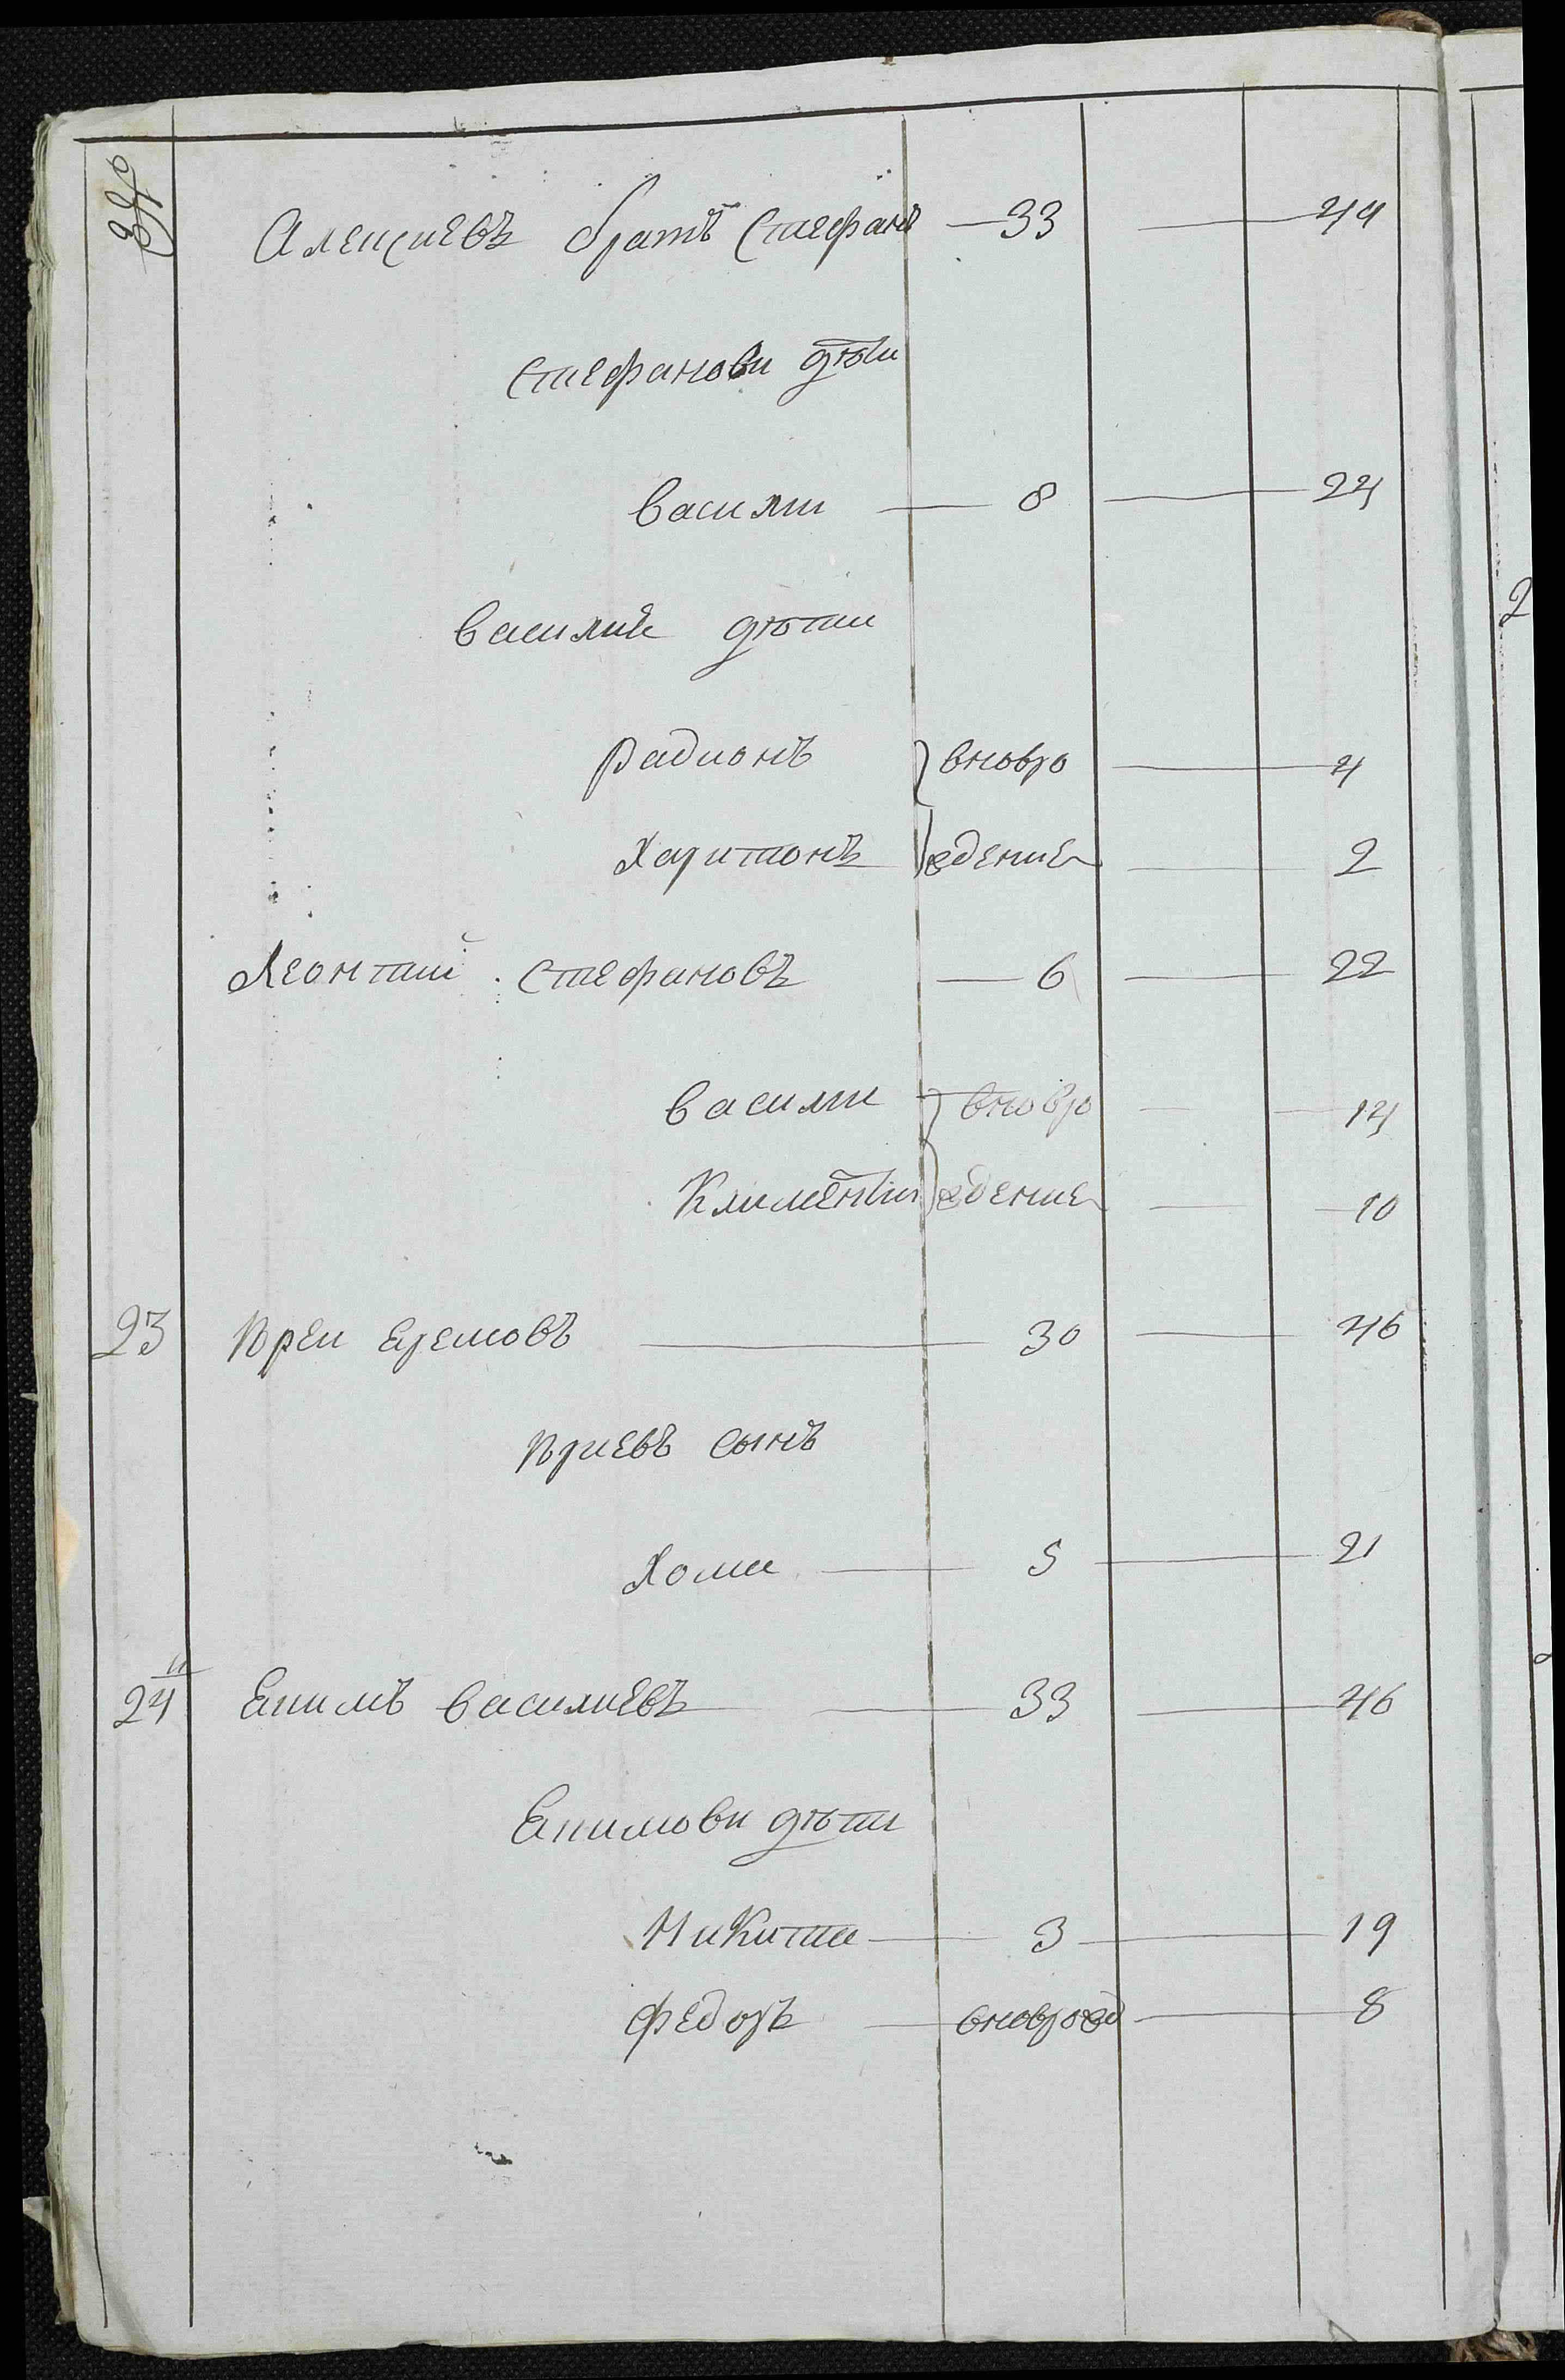 Алексиевъ братъ Стефанъ — 33 — 44
Стефанови дѣти
Васили — 8 — 24
Василия дѣти
Радионъ } вновро — 4
Харитонъ } жденне — 2
Леонтий Стефановъ — 6 — 22
Васили } вновро — 14
Климентии } жденне — 10
23 Юреи Еремовъ — 30 — 46
Юриевъ сынъ
Хома — 5 — 21
24 Екимъ Василиевъ — 33 — 46
Екимови дѣти
Никита — 3 — 19
Федоръ — вноврожд — 8